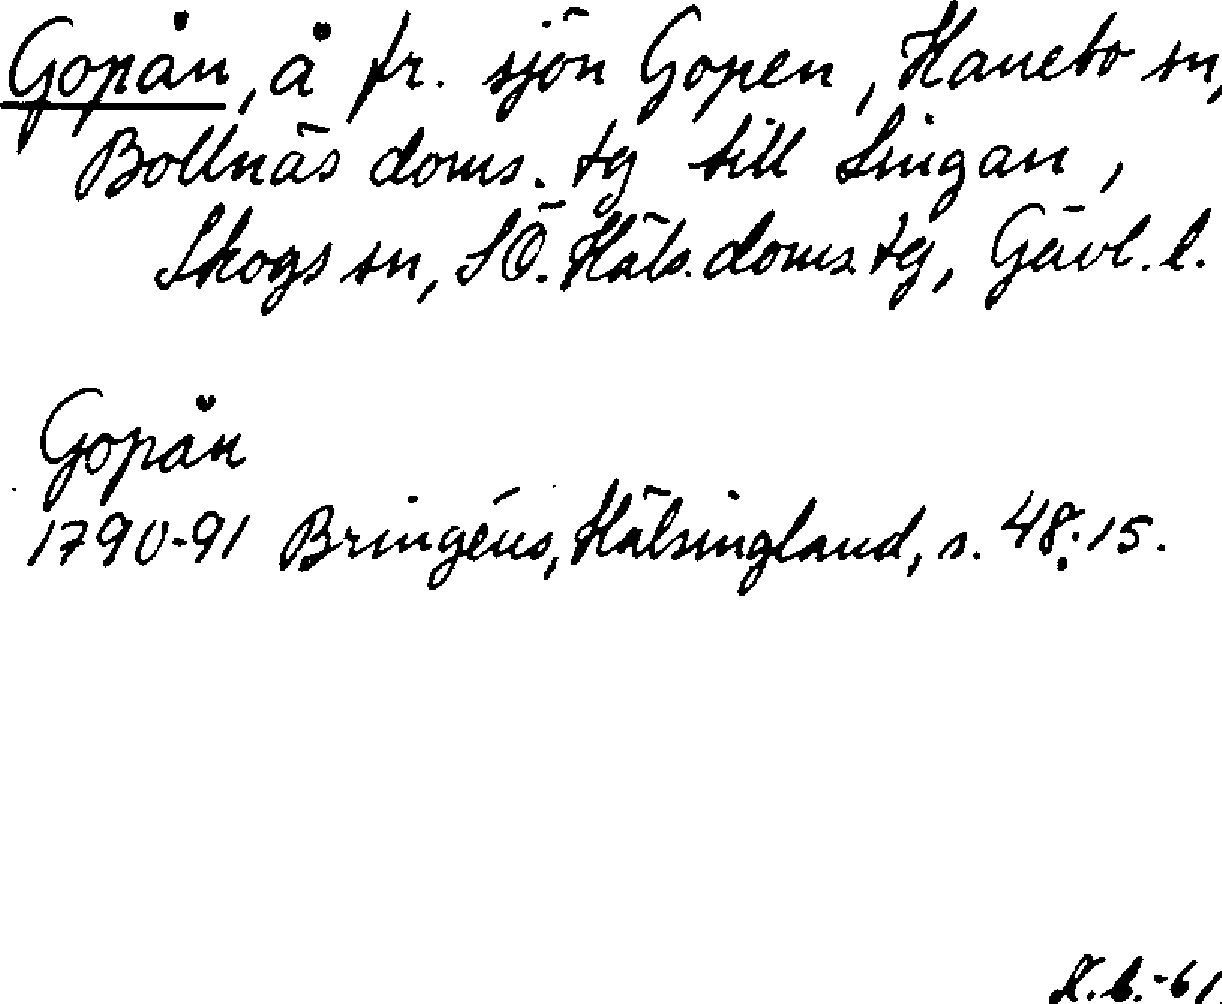 Gopån, å fr. sjön Gopen, Hanebo sn,
Bollnäs doms. tg till Lingan,
Skogs sn, SÖ. Häls. doms. tg, Gävl. l.
Gopån
1790-91 Bringéus, Hälsingland, s. 48:15.
-61